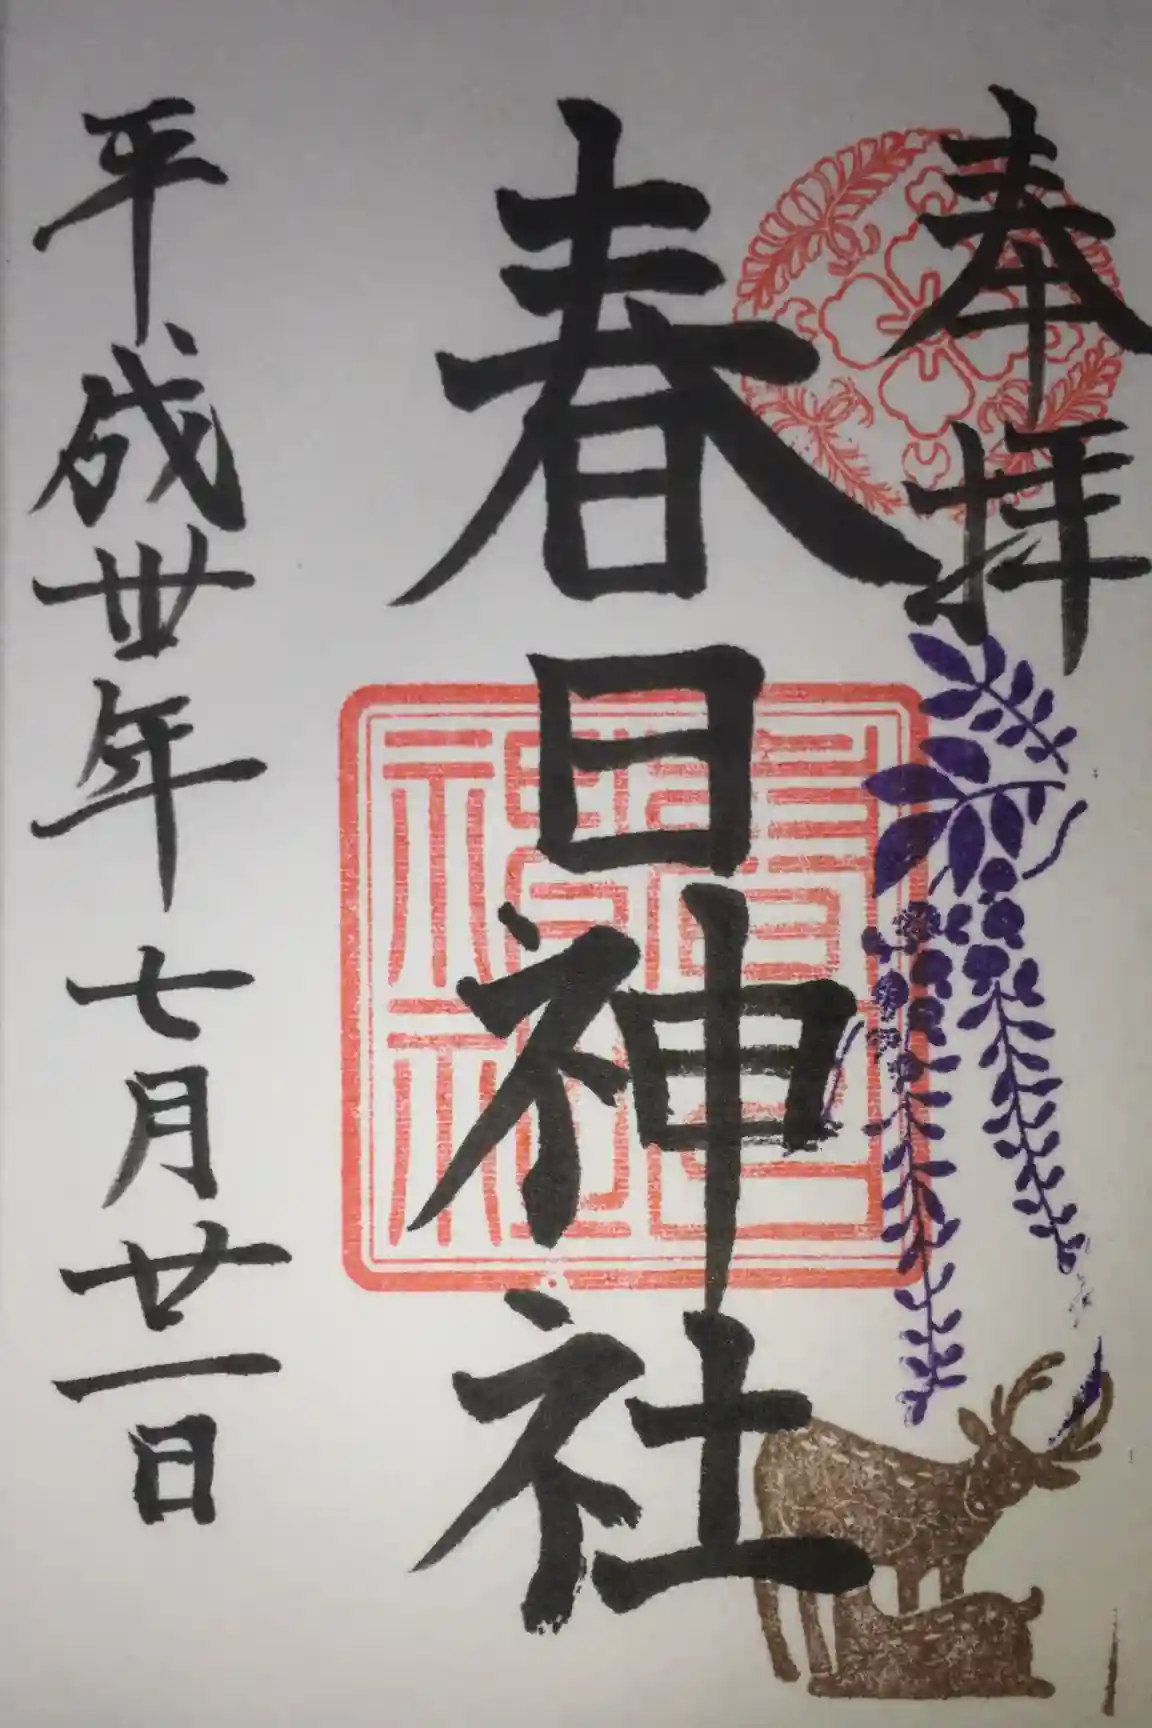 奉拝
春日神社
春日神社
平成丗年七月廿一日